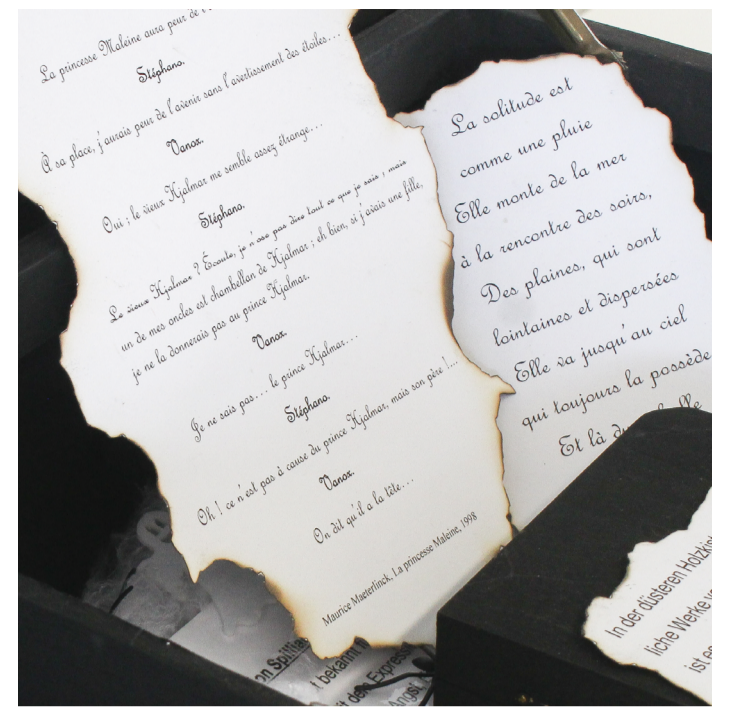 La princesse Maleine aura peur de l'
Stéphano.
À sa place, j'aurais peur de l'avenir sans l'avertissement des étoiles...
Vanox.
Oui ; le vieux Hjalmar me semble assez étrange...
Stéphano.
Le vieux Hjalmar ? Écoute, je n'ose pas dire tout ce que je sais ; mais
un de mes oncles est chambellan de Hjalmar ; eh bien, si j'avais une fille,
je ne la donnerais pas au prince Hjalmar.
Vanox.
Je ne sais pas... le prince Hjalmar...
Stéphano.
Oh ! ce n'est pas à cause du prince Hjalmar, mais son père !...
Vanox.
On dit qu'il a la tête...
Maurice Maeterlinck, La princesse Maleine, 1998
La solitude est
comme une pluie
Elle monte de la mer
à la rencontre des soirs,
Des plaines, qui sont
lointaines et dispersées
Elle va jusqu'au ciel
qui toujours la possède
Et là
In der düsteren Holzkist
liche Werke
ist es
bekannt
dem Express
Angst